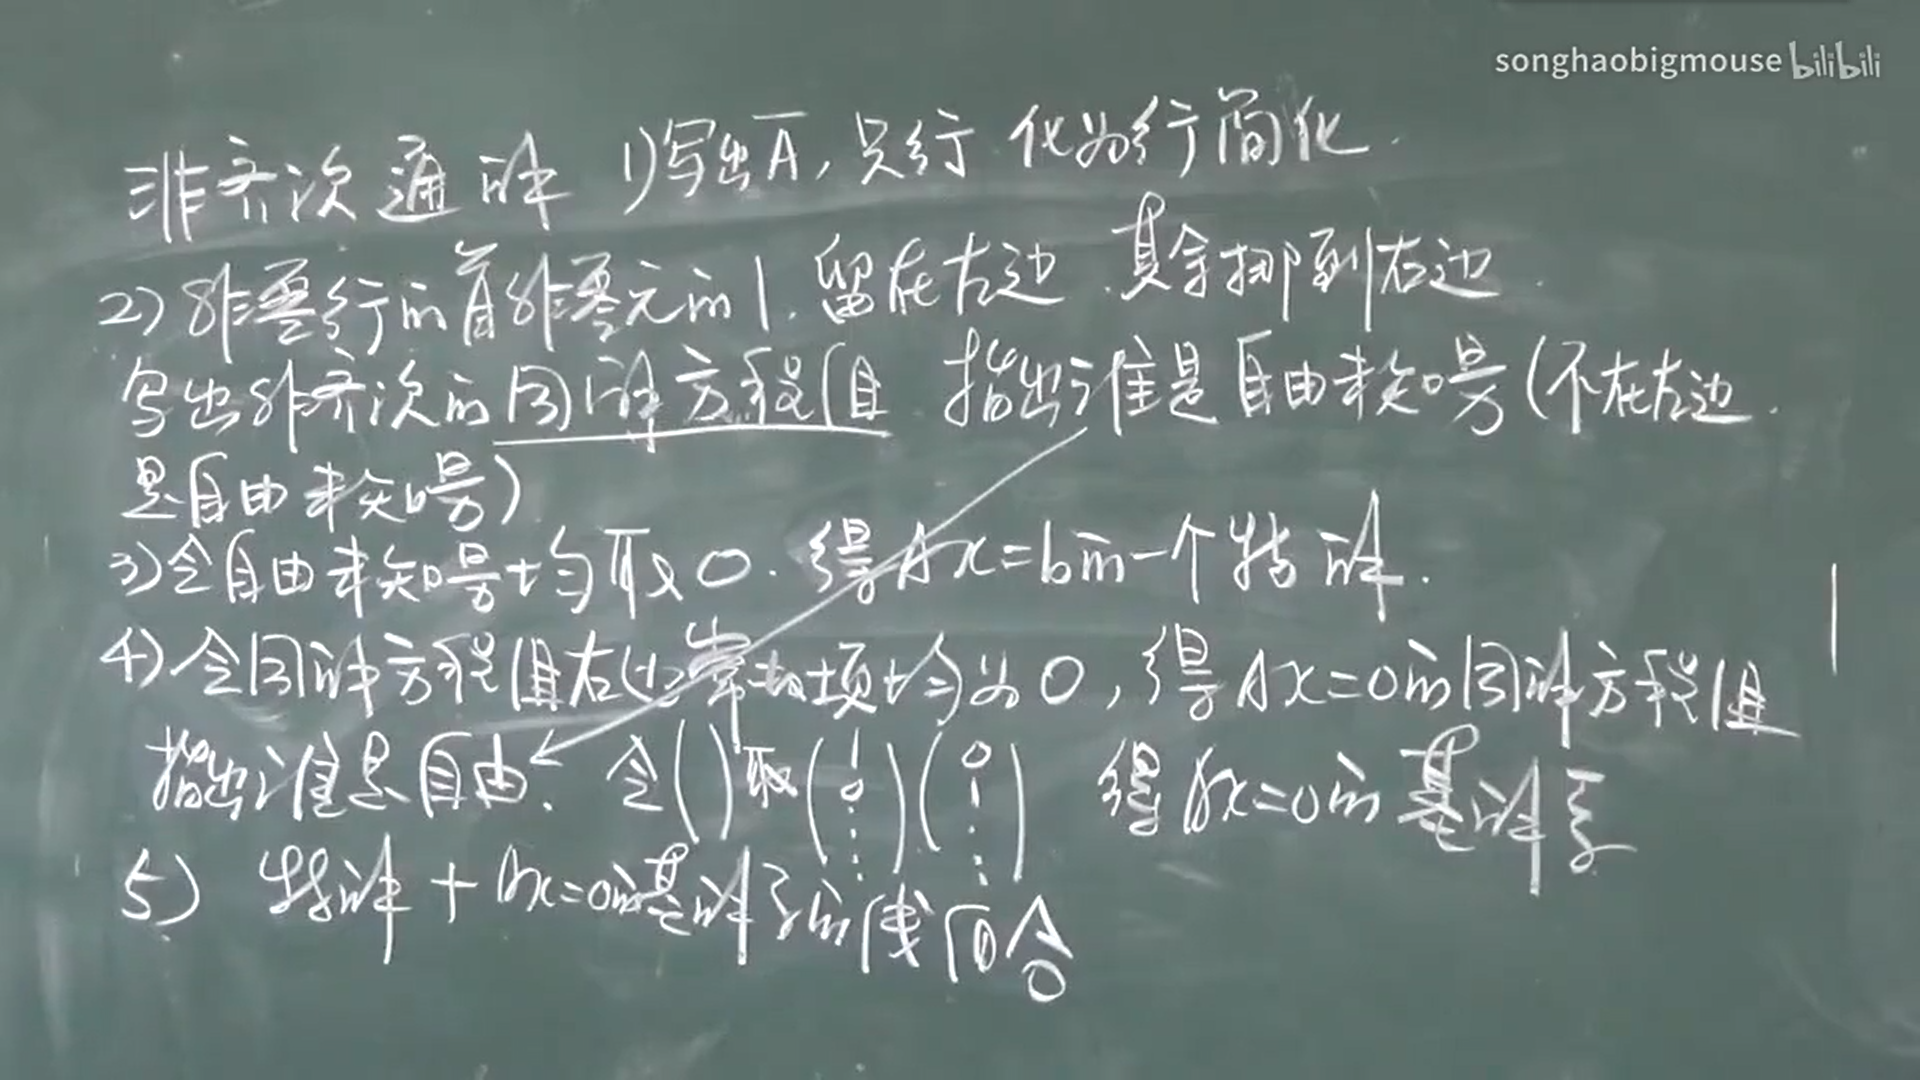 songhaobigmouse bilibili
非齐次通解 1)写出A̅,只行 化为行简化.
2)非零行的首非零元的1.留在左边.其余挪到右边.
写出非齐次的同解方程组 指出谁是自由未知量(不在左边.
是自由未知量)
3)令自由未知量均取0.得Ax=b的一个特解.
4)令同解方程组右边常数项均为0,得Ax=0的同解方程组
指出谁是自由. 令( )取(1 0 ⋮)(0 1 ⋮) 得Ax=0的基础解系
5) 特解+Ax=0的基解系的线组合